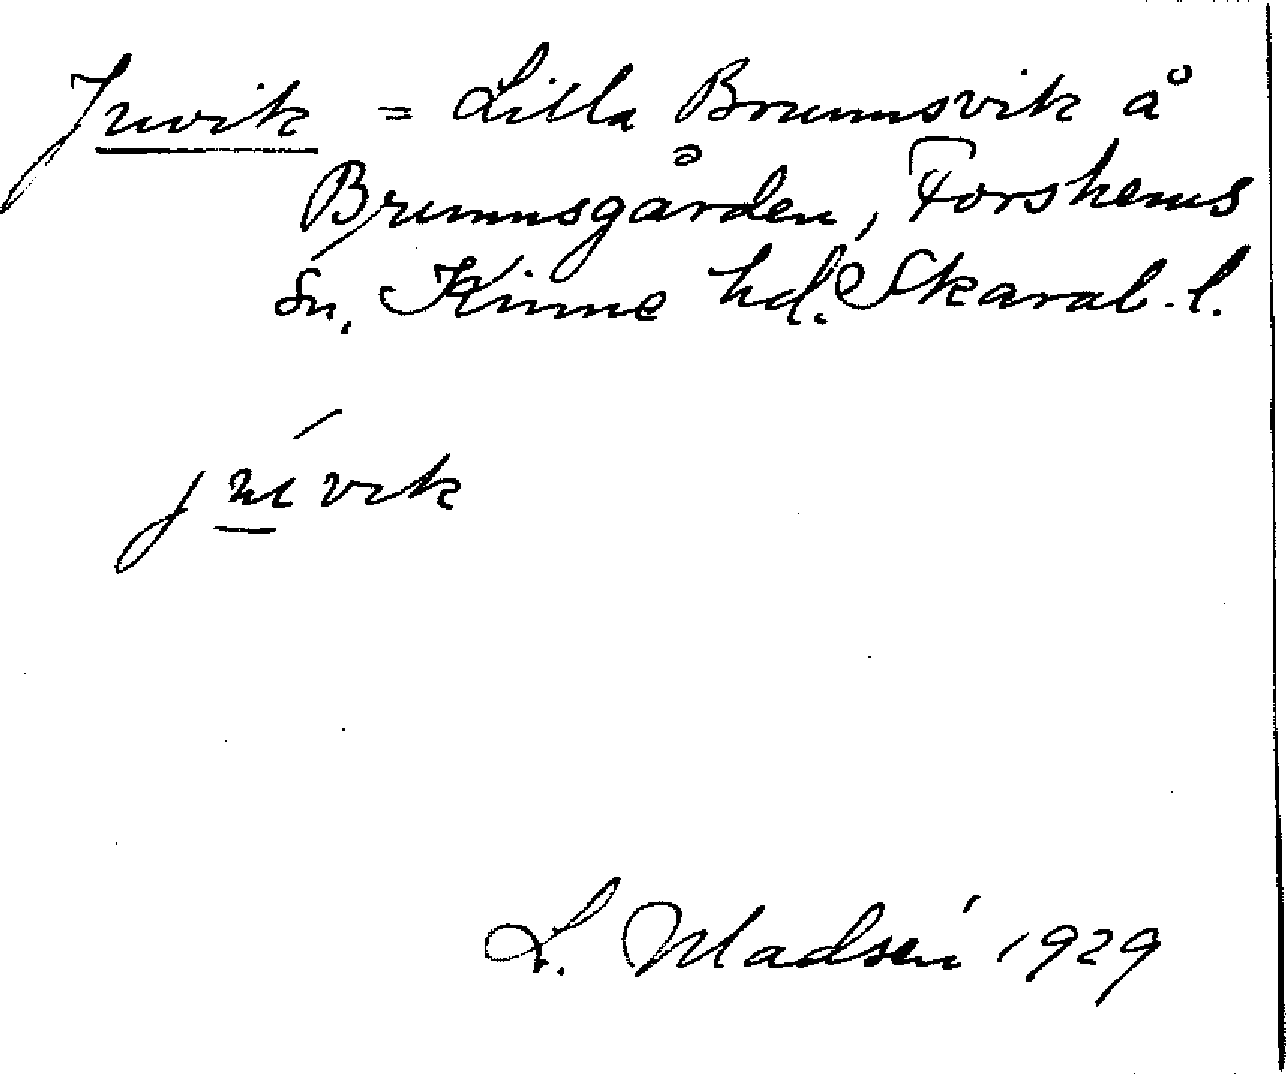 Juvik = Lilla Brunnsvik å
Brunnsgården, Forshems
Sn, Kinne hd. Skarab. l.
L. Madsén 1929